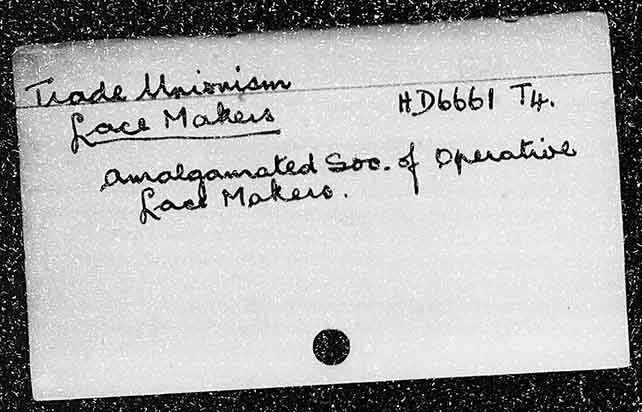 Trade Unionism
Lace Makers HD6661 T4.
Amalgamated Soc. of Operative
Lace Makers.